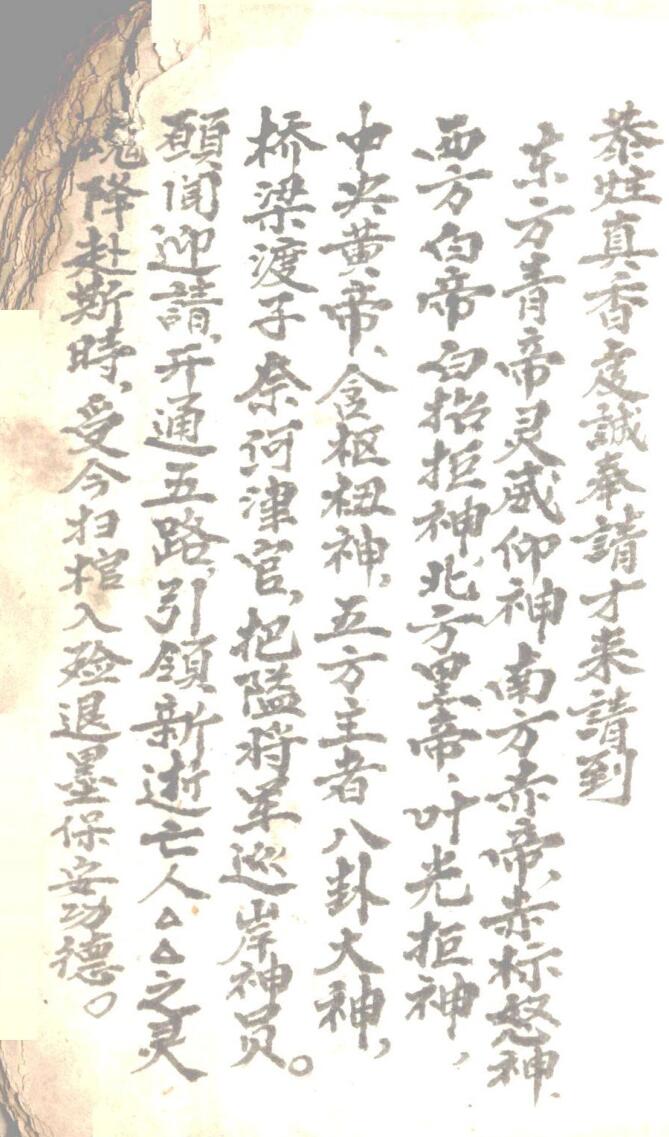 恭炷真香虔誠奉請才来請到
东方青帝灵威仰神南方赤帝、赤标怒神、
西方白帝白招拒神，北方黑帝、叶光拒神，
中央黄帝、含枢杻神，五方主者八卦大神，
桥梁渡子奈河津官，把隘将军巡岸神员。
願闻迎請，开通五路，引領新逝亡人△△之灵
魂降赴斯時，受今扫棺入殓退墨保安功德。